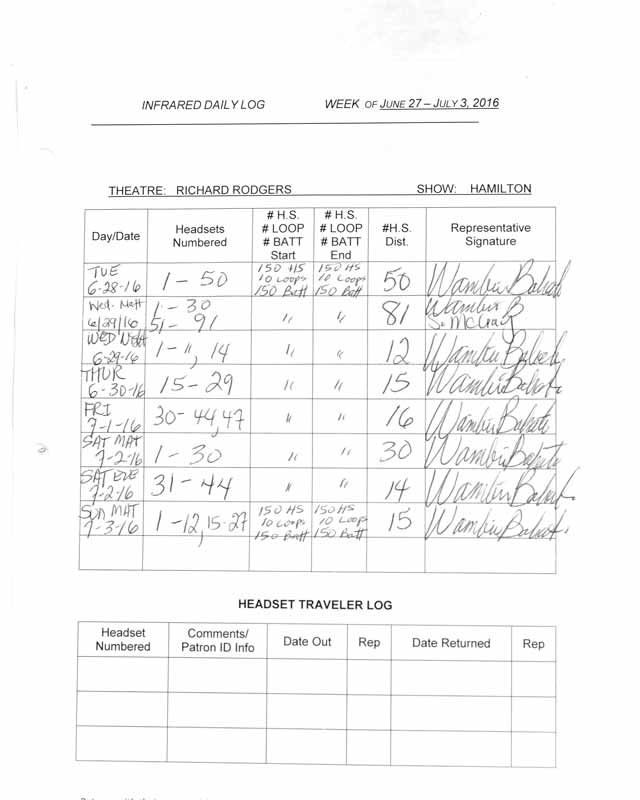 INFRARED DAILY LOG WEEK OF JUNE 27 – JULY 3, 2016
THEATRE: RICHARD RODGERS SHOW: HAMILTON
Day/Date Headsets Numbered # H.S. # LOOP # BATT Start # H.S. # LOOP # BATT End #H.S. Dist. Representative Signature
TUE 6-28-16 1 - 50 150 HS 10 Loops 150 Batt 150 HS 10 Loops 150 Batt 50
Wed. Matt 6/29/16 1 - 30 51 - 91 " " 81 Wambui B S. McGray
WED 6-29-16 1 - 11, 14 " " 12
THUR 6-30-16 15 - 29 " " 15
FRI 7-1-16 30 - 44, 47 " " 16
SAT MAT 7-2-16 1 - 30 " " 30
SAT EVE 7-2-16 31 - 44 " " 14
SUN MAT 7-3-16 1 - 12, 15-27 150 HS 10 Loops 150 Batt 150 HS 10 Loops 150 Batt 15
HEADSET TRAVELER LOG
Headset Numbered Comments/ Patron ID Info Date Out Rep Date Returned Rep